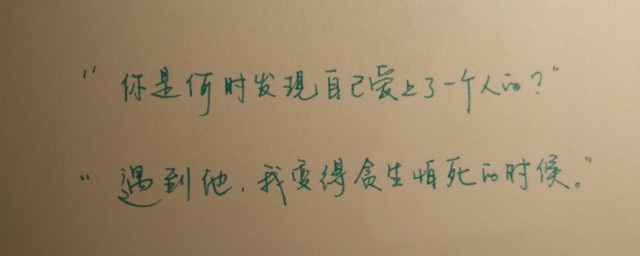 “你是何时发现自己爱上了一个人的?”
“遇到他，我变得贪生怕死的时候。”